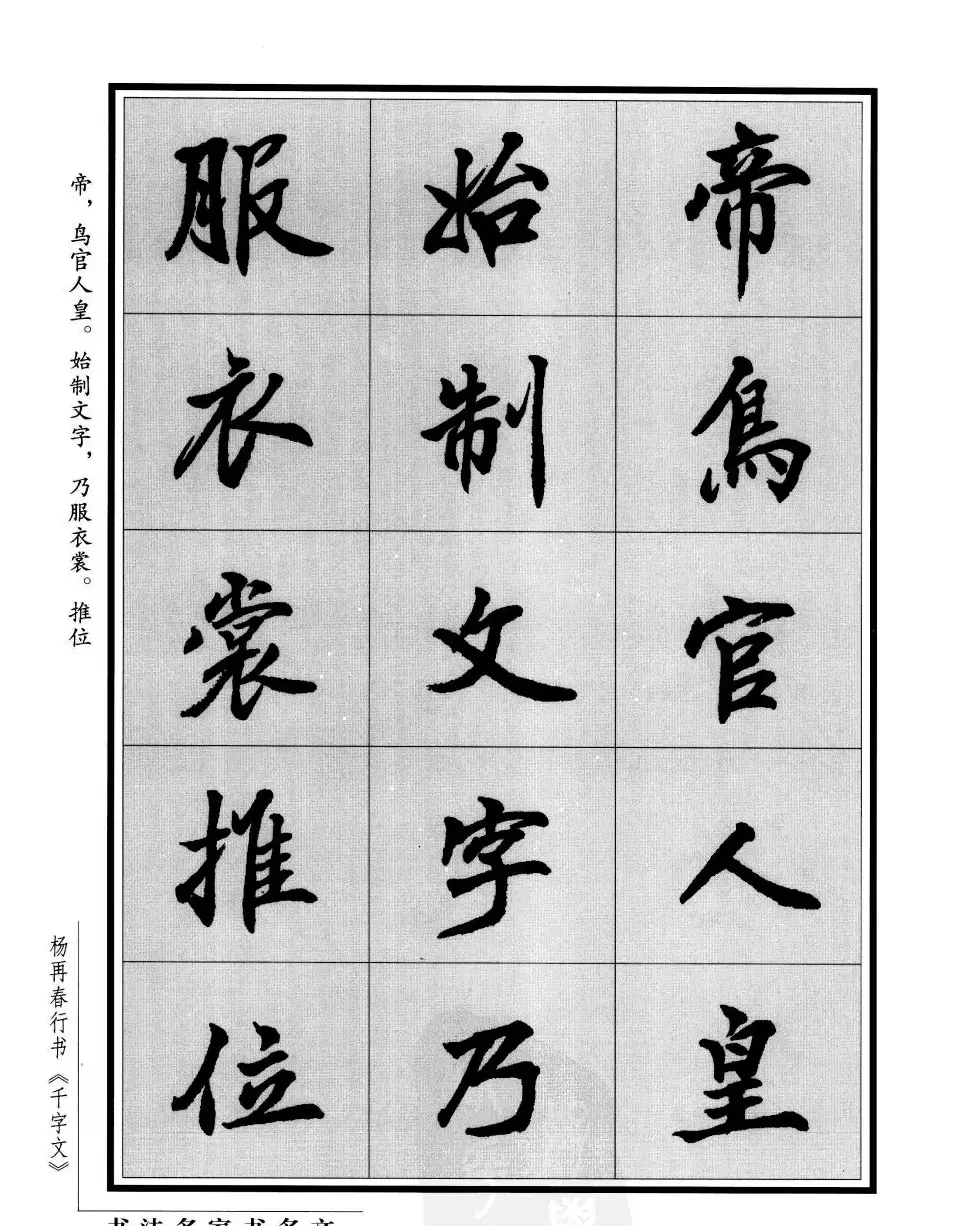 帝鳥官人皇
始制文字乃
服衣裳推位
帝，鸟官人皇。始制文字，乃服衣裳。推位
杨再春行书《千字文》